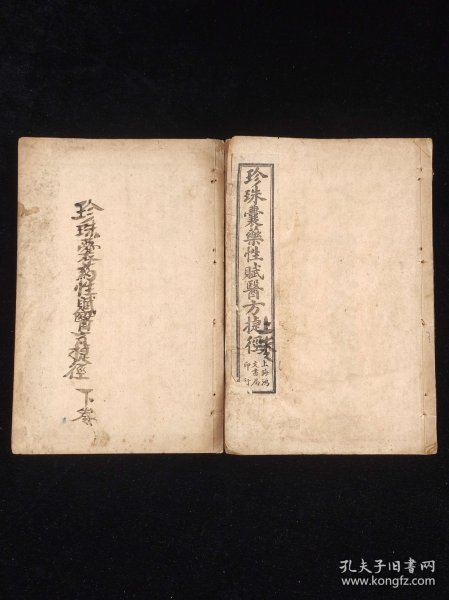 珍珠囊藥性賦醫方捷徑
上卷
上海鴻
文書局
印行
珍珠囊药性賦醫方捷徑 下卷
孔夫子旧书网
www.kongfz.com